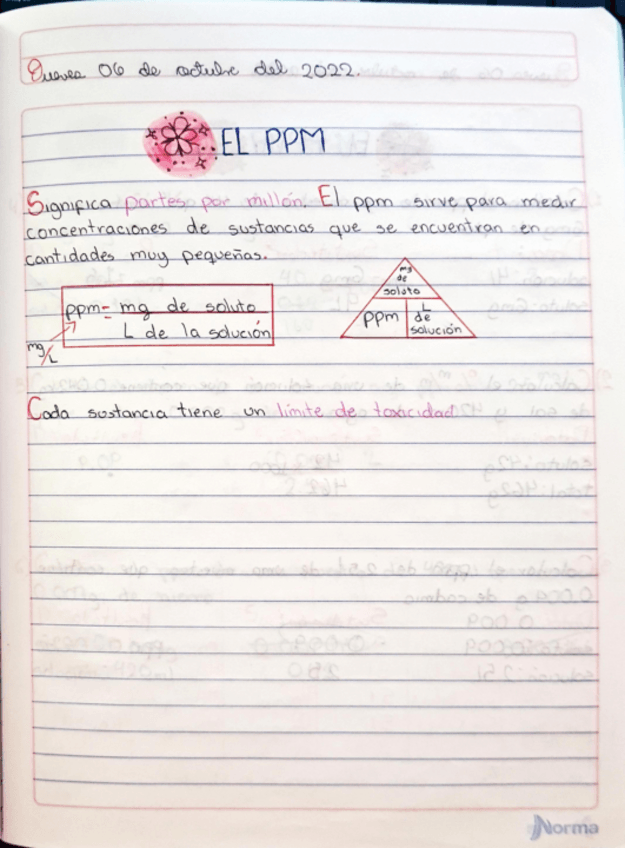 Jueves 06 de octubre del 2022.
EL PPM
Significa partes por millón. El ppm sirve para medir
concentraciones de sustancias que se encuentran en
cantidades muy pequeñas.
ppm = mg de soluto
L de la solución
mg/L
mg
de
soluto
ppm
L
de
solución
Cada sustancia tiene un límite de toxicidad
Norma